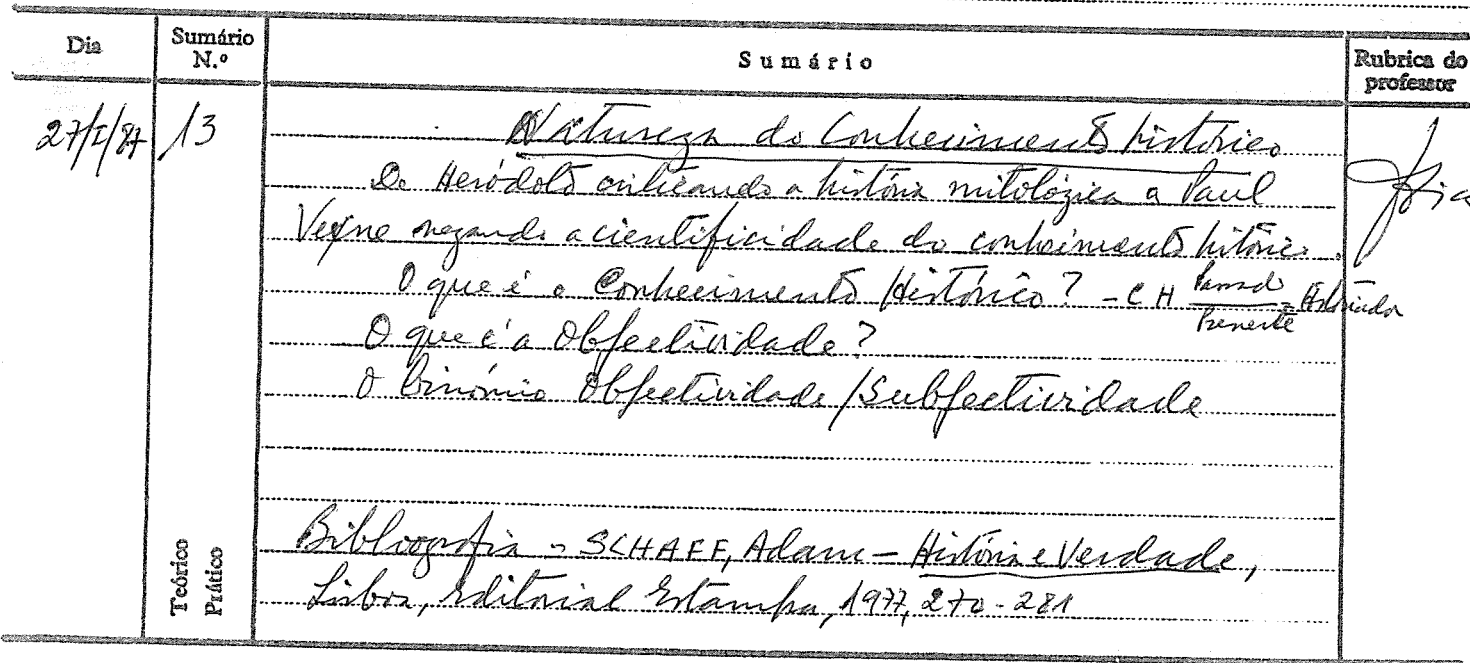 Dia Sumário N.º Sumário Rubrica do professor
27/I/87 13 Natureza do Conhecimento histórico
De Heródoto criticando a história mitológica a Paul
Veyne negando a cientificidade do conhecimento histórico.
O que é o Conhecimento Histórico? - C H Passado / Presente = Historiador
O que é a Objectividade?
O binómio Objectividade/Subjectividade
Bibliografia - SCHAFF, Adam - História e Verdade,
Lisboa, Editorial Estampa, 1977, 270-281
Teórico
Prático